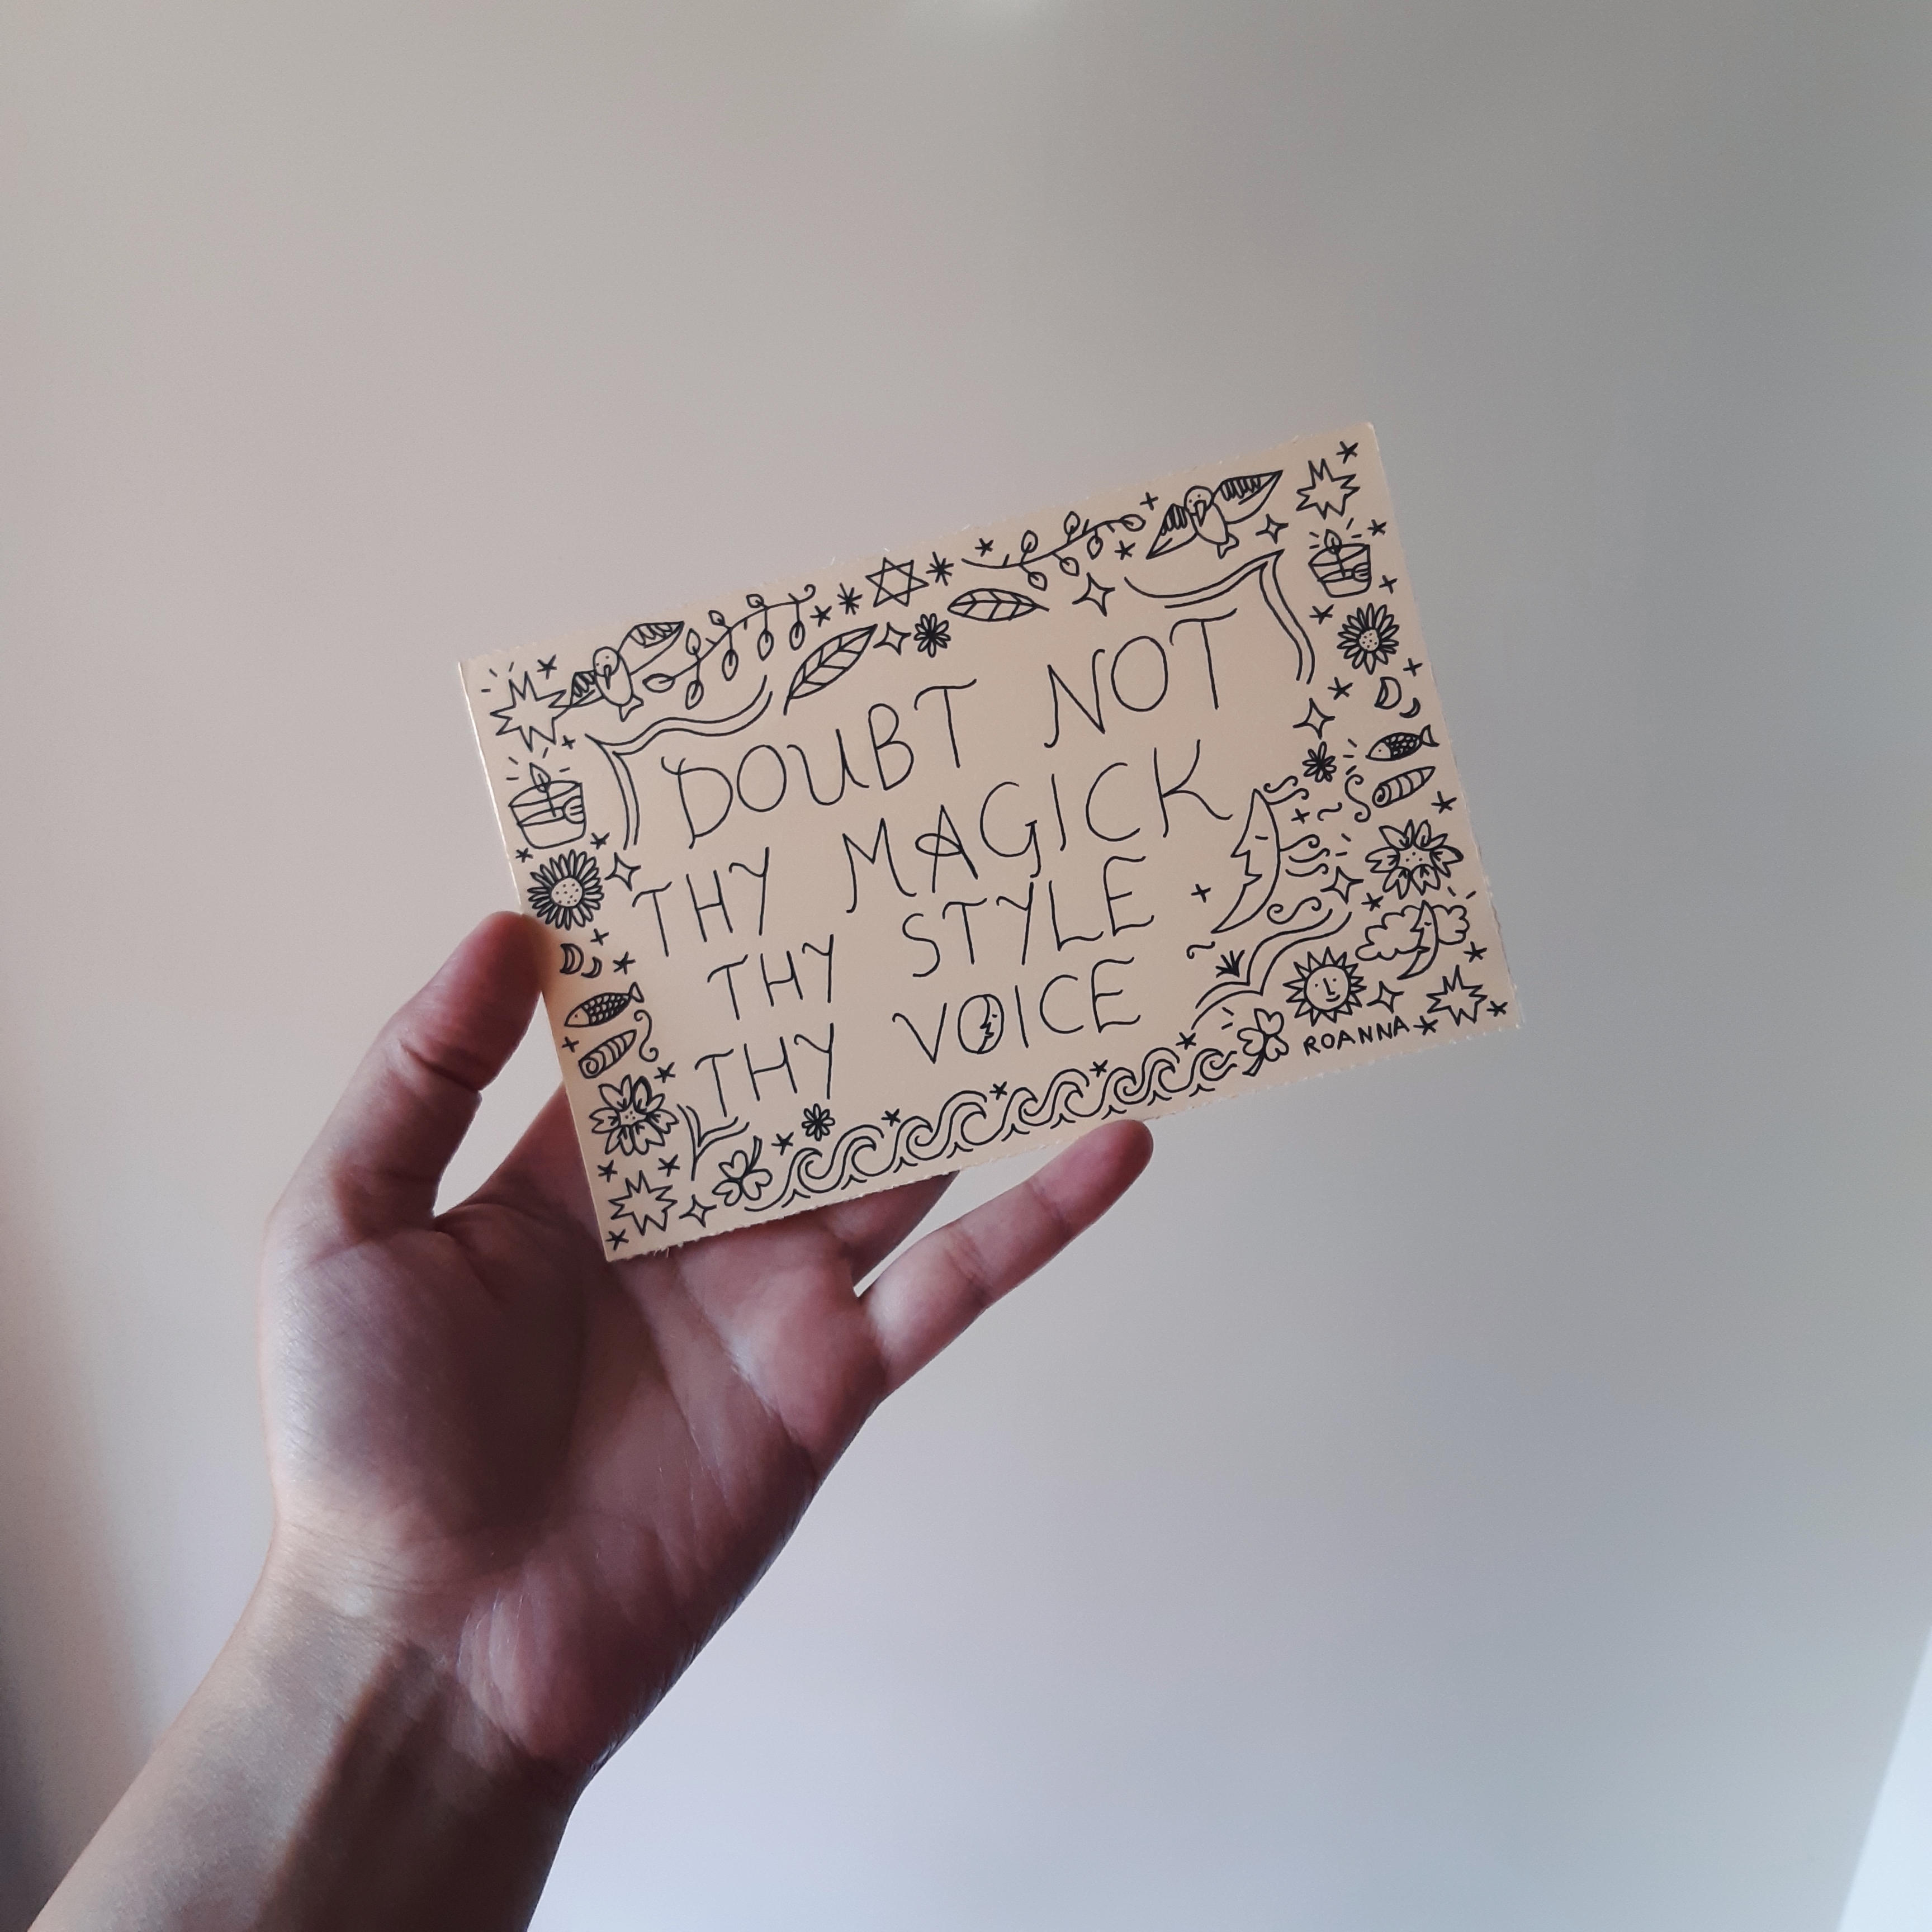 DOUBT NOT
THY MAGICK
THY STYLE
THY VOICE
ROANNA